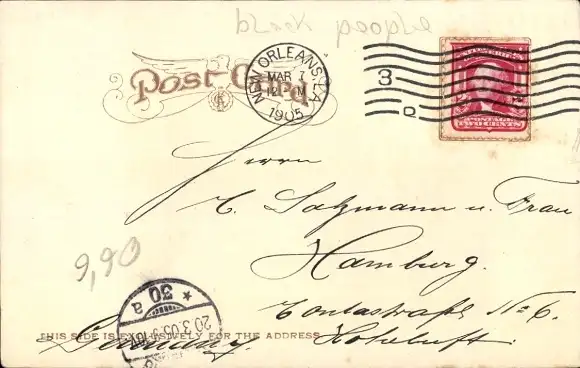 black people
Post Card
NEW ORLEANS, LA
MAR 7
12 M
1905
3
D
POSTAGE
TWO CENTS
Herrn
C. Salzmann u. Frau
Hamburg.
No 6.
Hoheluft.
9,90
30 a
20.3.05
THIS SIDE IS EXCLUSIVELY FOR THE ADDRESS
Germany.